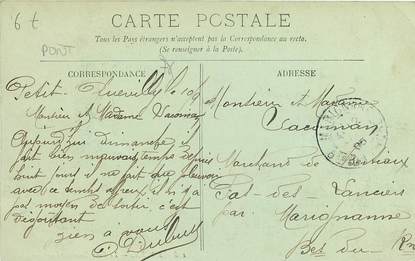 6 t
PONT
CARTE POSTALE
Tous les Pays étrangers n'acceptent pas la Correspondance au recto.
(Se renseigner à la Poste).
CORRESPONDANCE
Petit-Quevilly le 10/9
Monsieur et Madame Vacoman
Aujourd'hui dimanche
fait bien mauvais temps depuis
huit jours il ne fait que pleuvoir
avec ce temps affreux il n'y a
pas moyen de sortir, c'est
dégoûtant
bien à vous
ADRESSE
Monsieur et Madame
Vacoman
Marchand de
Pas-des-Lanciers
par Marignanne
Bes du Rh